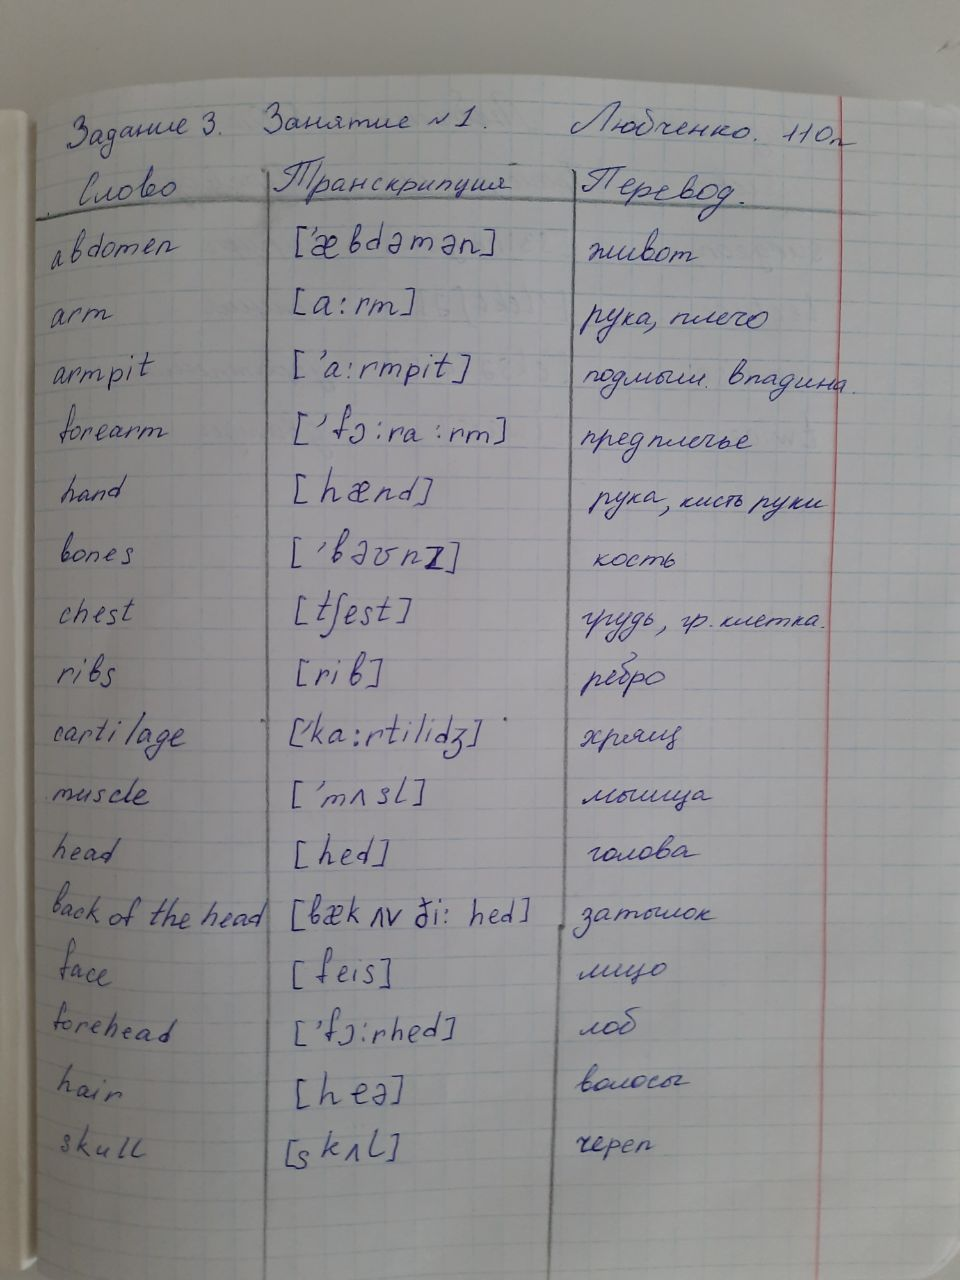 Задание 3. Занятие №1. Любченко. 110л
Слово Транскрипция Перевод.
abdomen ['æbdəmən] живот
arm [a:rm] рука, плечо
armpit ['a:rmpit] подмыш. впадина.
forearm ['fɔ:ra:rm] предплечье
hand [hænd] рука, кисть руки
bones ['bəʊnz] кость
chest [tʃest] грудь, гр. клетка.
ribs [rib] ребро
cartilage ['ka:rtilidʒ] хрящ
muscle ['mʌsl] мышца
head [hed] голова
back of the head [bæk ʌv ði: hed] затылок
face [feis] лицо
forehead ['fɔ:rhed] лоб
hair [heə] волосы
skull [skʌl] череп